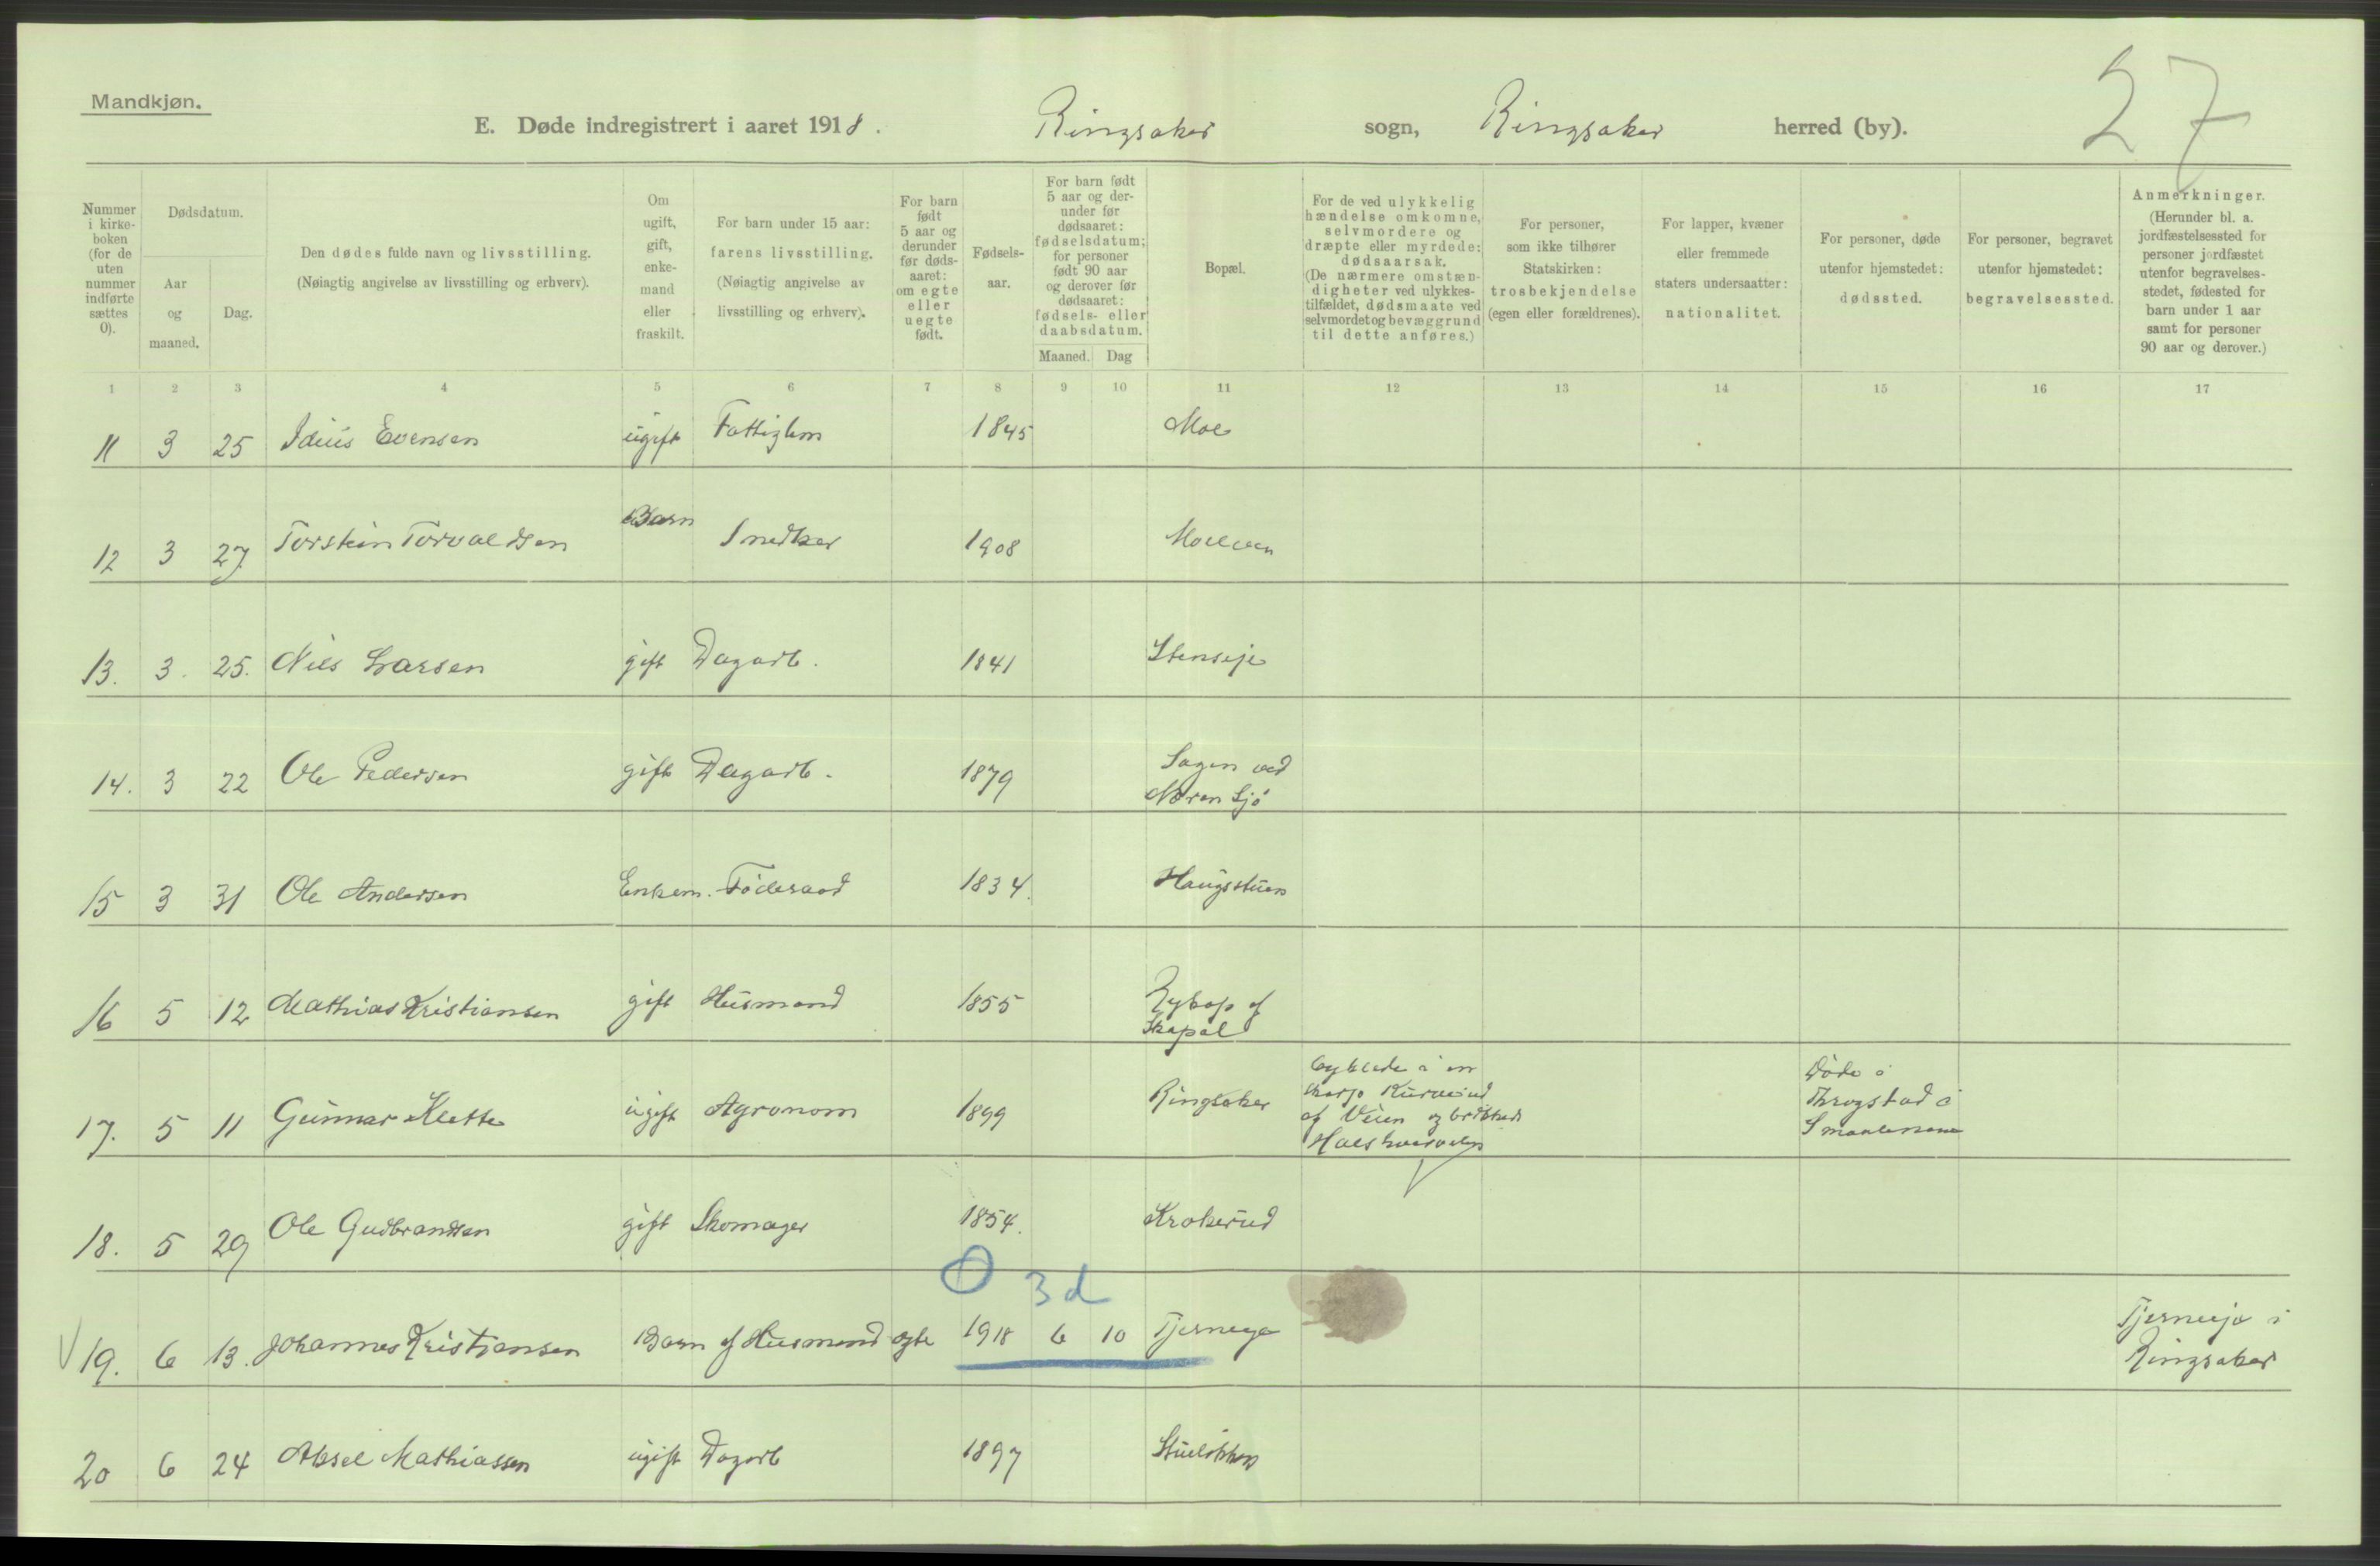 Mandkjøn.
27
E. Døde indregistrert i aaret 1918. Ringsaker sogn, Ringsaker herred (by).
Nummer i kirkeboken (for de uten nummer indførte sættes 0).
Dødsdatum.
Aar og maaned.
Dag.
Den dødes fulde navn og livsstilling.
(Nøiagtig angivelse av livsstilling og erhverv).
Om ugift, gift, enkemand eller fraskilt.
For barn under 15 aar: farens livsstilling.
(Nøiagtig angivelse av livsstilling og erhverv).
For barn født 5 aar og derunder før dødsaaret: om egte eller uegte født.
Fødselsaar.
For barn født 5 aar og derunder før dødsaaret: fødselsdatum; for personer født 90 aar og derover før dødsaaret: fødsels- eller daabsdatum.
Maaned. Dag
Bopæl.
For de ved ulykkelig hændelse omkomne, selvmordere og dræpte eller myrdede: dødsaarsak.
(De nærmere omstændigheter ved ulykkestilfældet, dødsmaate ved selvmordet og bevæggrund til dette anføres.)
For personer, som ikke tilhører Statskirken: trosbekjendelse (egen eller forældrenes).
For lapper, kvæner eller fremmede staters undersaatter: nationalitet.
For personer, døde utenfor hjemstedet: dødssted.
For personer, begravet utenfor hjemstedet: begravelsessted.
Anmerkninger.
(Herunder bl. a. jordfæstelsessted for personer jordfæstet utenfor begravelsesstedet, fødested for barn under 1 aar samt for personer 90 aar og derover.)
1 2 3 4 5 6 7 8 9 10 11 12 13 14 15 16 17
11 3 25 Idius Evensen ugift Fattiglem 1845 Moe
12 3 27. Torstein Torvaldsen Barn Snedker 1908 Moelven
13. 3. 25. Nils Larsen gift Dagarb. 1841 Stenseje
14. 3 22 Ole Pedersen gift Dagarb. 1879 Sagen ved
Næren Sjø
15 3 31 Ole Andersen Enkem. Föderaad 1834. Haugsstuen
16 5 12 Mathias Kristiansen gift Husmand 1855 af
17. 5 11 Gunnar Klette ugift Agronom 1899 Ringsaker Cyklede i en
skarp Kurve ud
af Veien og brækked
Halshvirvelen
Døde i
Throgstad i
Smaalenene
18. 5 29 Ole Gudbrandsen gift Skomager 1854. Krokerud
O 3d
V 19. 6 13. Johannes Kristiansen Barn af Husmand ægte 1918 6 10 Tjerneje Tjerneje i
Ringsaker
20 6 24 Aksel Mathiassen ugift Dagarb 1897